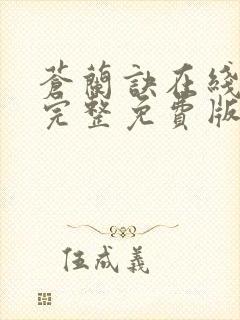 蒼蘭訣在綫
完整免費版
伍成義